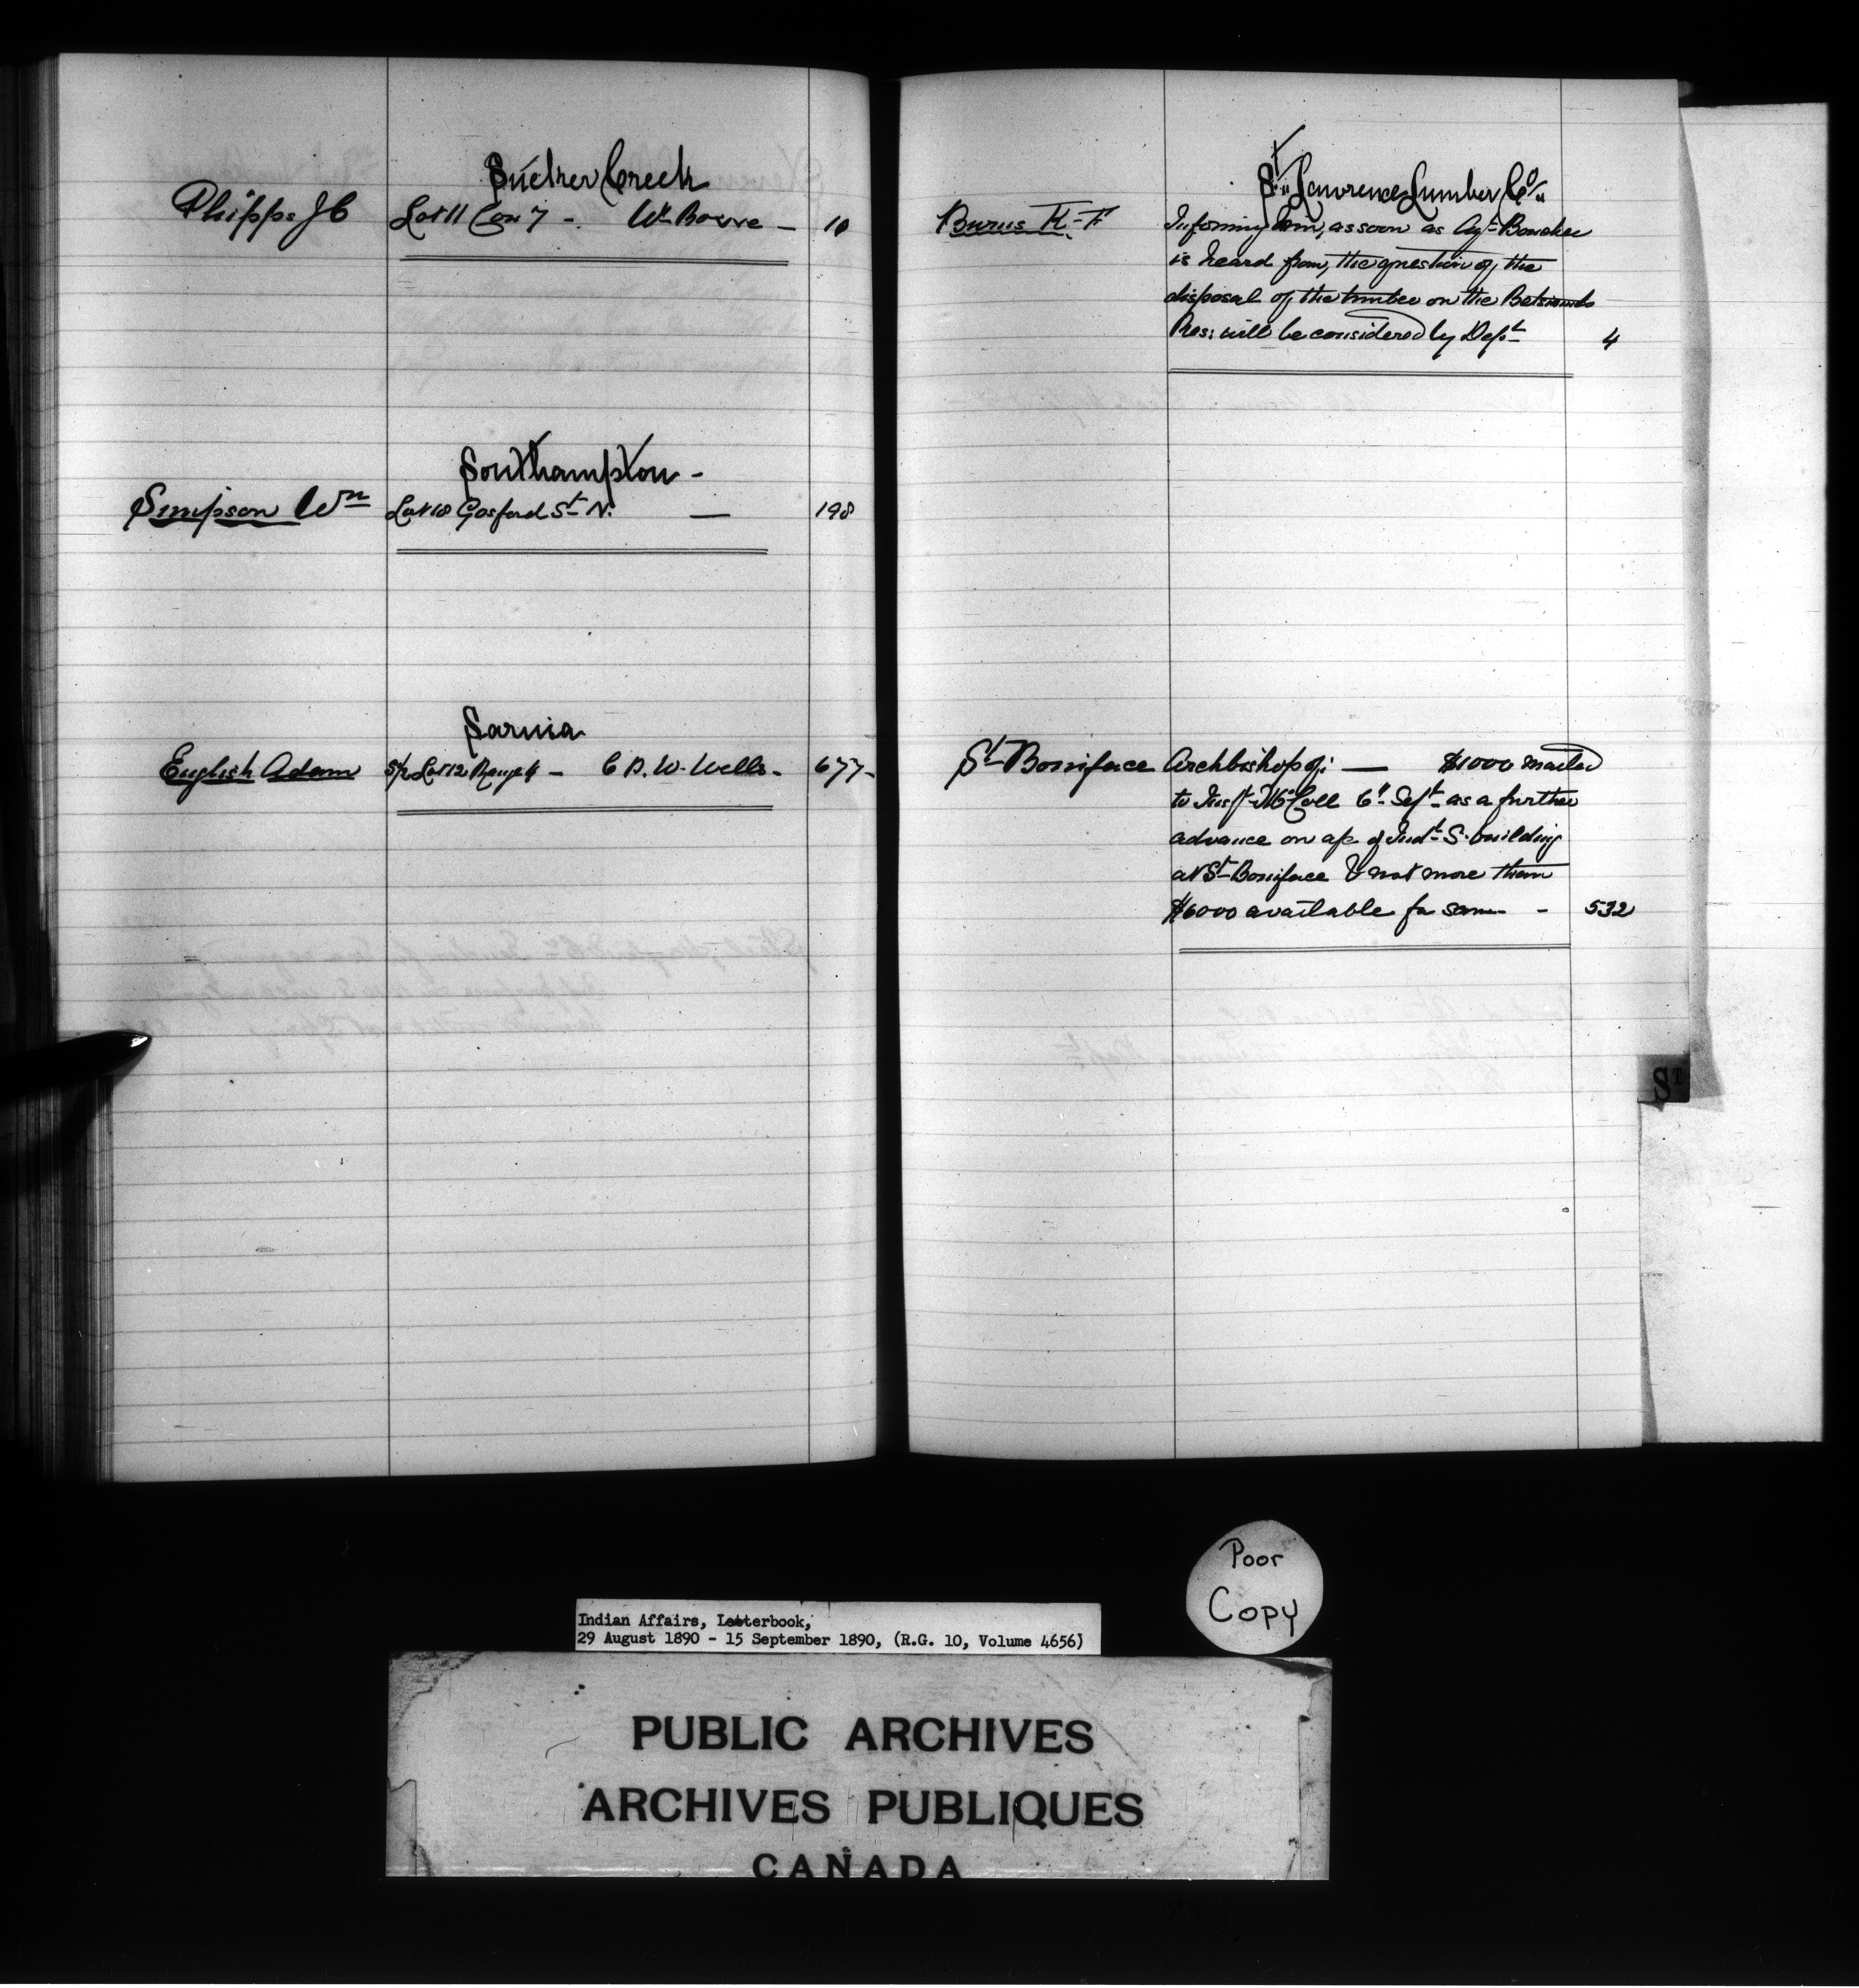 Sucker Creek
Phipps J C Lot 11 Con 7 - Wm Bowre - 10
Southampton -
Simpson Wm Lot 18 Gosford St N. — 198
Sarnia
English Adam S/2 Lot 12 Range 4 - C D. W. Wells - 677 -
St Lawrence Lumber Co
Burns K. F Informing him, as soon as Agt Boucher
is heard from, the question of the
disposal of the timber on the Betsiamits
Res: will be considered by Dept 4
St Boniface Archbishop of: — $1000 mailed
to Insp. McColl 6" Sept as a further
advance on a/c of Indl S. building
at St Boniface & not more than
$6000 available for same - 532
ST
Poor
Copy
Indian Affairs, Letterbook,
29 August 1890 - 15 September 1890, (R.G. 10, Volume 4656)
PUBLIC ARCHIVES
ARCHIVES PUBLIQUES
CANADA